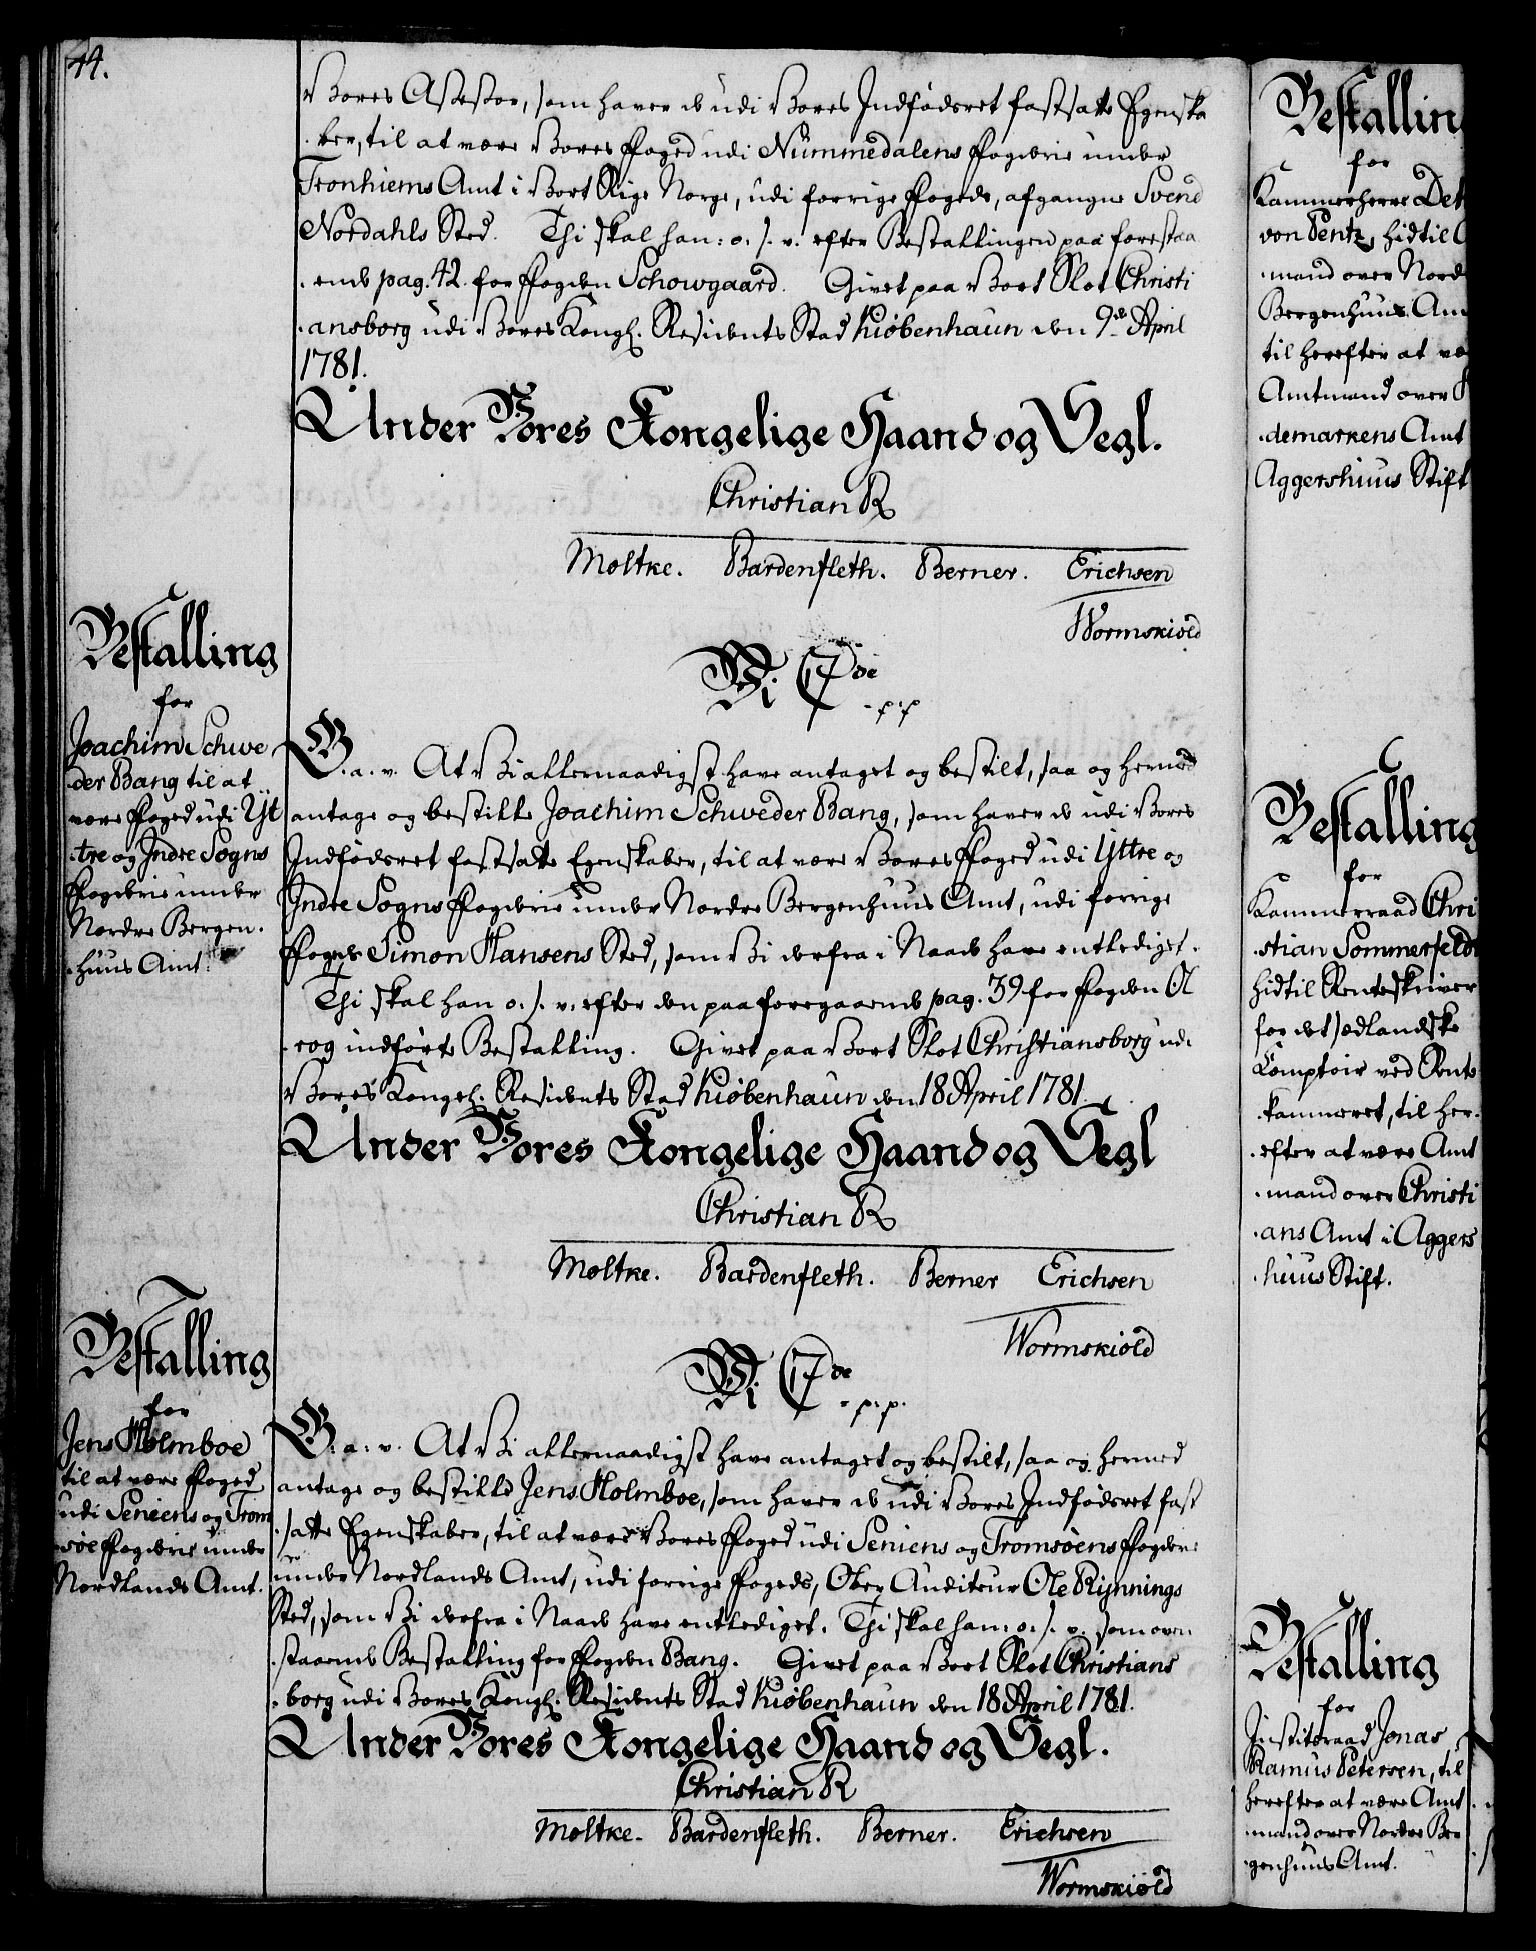 44.
Vores Assessor, som haver de udi Vores Indfødsret fastsatte Egenska
ber, til at være Vores Foged udi Nummedalens Fogderie under
Tronhiems Amt i Vort Rige Norge, udi forrige Fogeds, afgangne Svend
Nordahls Sted. Thi skal han: o. s. v. efter Bestallingen paa forestaa
ende pag. 42. for Fogden Schowgaard. Givet paa Vort Slot Christi
ansborg udi Vores Kongl. Residents Stad Kiøbenhaun den 9de April
1781.
Under Vores Kongelige Haand og Segl.
Christian R
Moltke. Bardenfleth. Berner. Erichsen
Wormskiold
Bestalling
for
Joachim Schwe
der Bang til at
være Foged udi Yt
tre og Indre Sogns
Fogderie under
Nordre Bergen
huus Amt.
Vi C7de
p. p
G. a. v. At Vi allernaadigst have antaget og bestilt, saa og hermed
antage og bestille Joachim Schweder Bang, som haver de udi Vores
Indfødsret fastsatte Egenskaber, til at være Vores Foged udi Yttre og
Indre Sogns Fogderie under Nordre Bergenhuus Amt, udi forrige
Fogeds Simon Hansens Sted, som Vi derfra i Naade have entlediget.
Thi skal han o. s. v. efter den paa foregaaende pag. 39 for Fogden Ol
rog indførte Bestalling. Givet paa Vort Slot Christiansborg udi
Vores Kongel. Residents Stad Kiøbenhaun den 18 April 1781.
Under Vores Kongelige Haand og Segl
Christian R
Moltke. Bardenfleth. Berner Erichsen
Wormskiold
Bestalling
for
Jens Holmboe
til at være Foged
udi Seniens og Trom
søe Fogderie under
Nordlands Amt.
Vi C7de
p. p.
G. a. v. At Vi allernaadigst have antaget og bestilt, saa og hermed
antage og bestille Jens Holmboe, som haver de udi Vores Indfødsret fast
satte Egenskaber, til at være Vores Foged udi Seniens og Tromsøens Fogderie
under Nordlands Amt, udi forrige Fogeds, Ober Auditeur Ole Rynnings
Sted, som Vi derfra i Naade have entlediget. Thi skal han: o. s. v. som oven
staaende Bestalling for Fogden Bang. Givet paa Vort Slot Christians
borg udi Vores Kongl. Residents Stad Kiøbenhaun den 18 April 1781.
Under Vores Kongelige Haand og Segl.
Christian R
Moltke. Bardenfleth. Berner. Erichsen
Wormskiold
Bestallin
for
Kammerherre Det
von Pentz, hidtil
mand over Nord
Bergenhuus Am
til herefter at væ
Amtmand over
demarkens Amt
Aggershuus Stift
Bestalling
for
Kammerraad Chri
stian Sommerfeldt
hidtil Renteskriver
for det sædlandske
Comptoir ved Rente
kammeret, til her
efter at være Amt
mand over Christi
ans Amt i Aggers
huus Stift.
Bestalling
for
Justitsraad Jonas
Ramus Petersen, til
herefter at være Amt
mand over Nordre Ber
genhuus Amt.